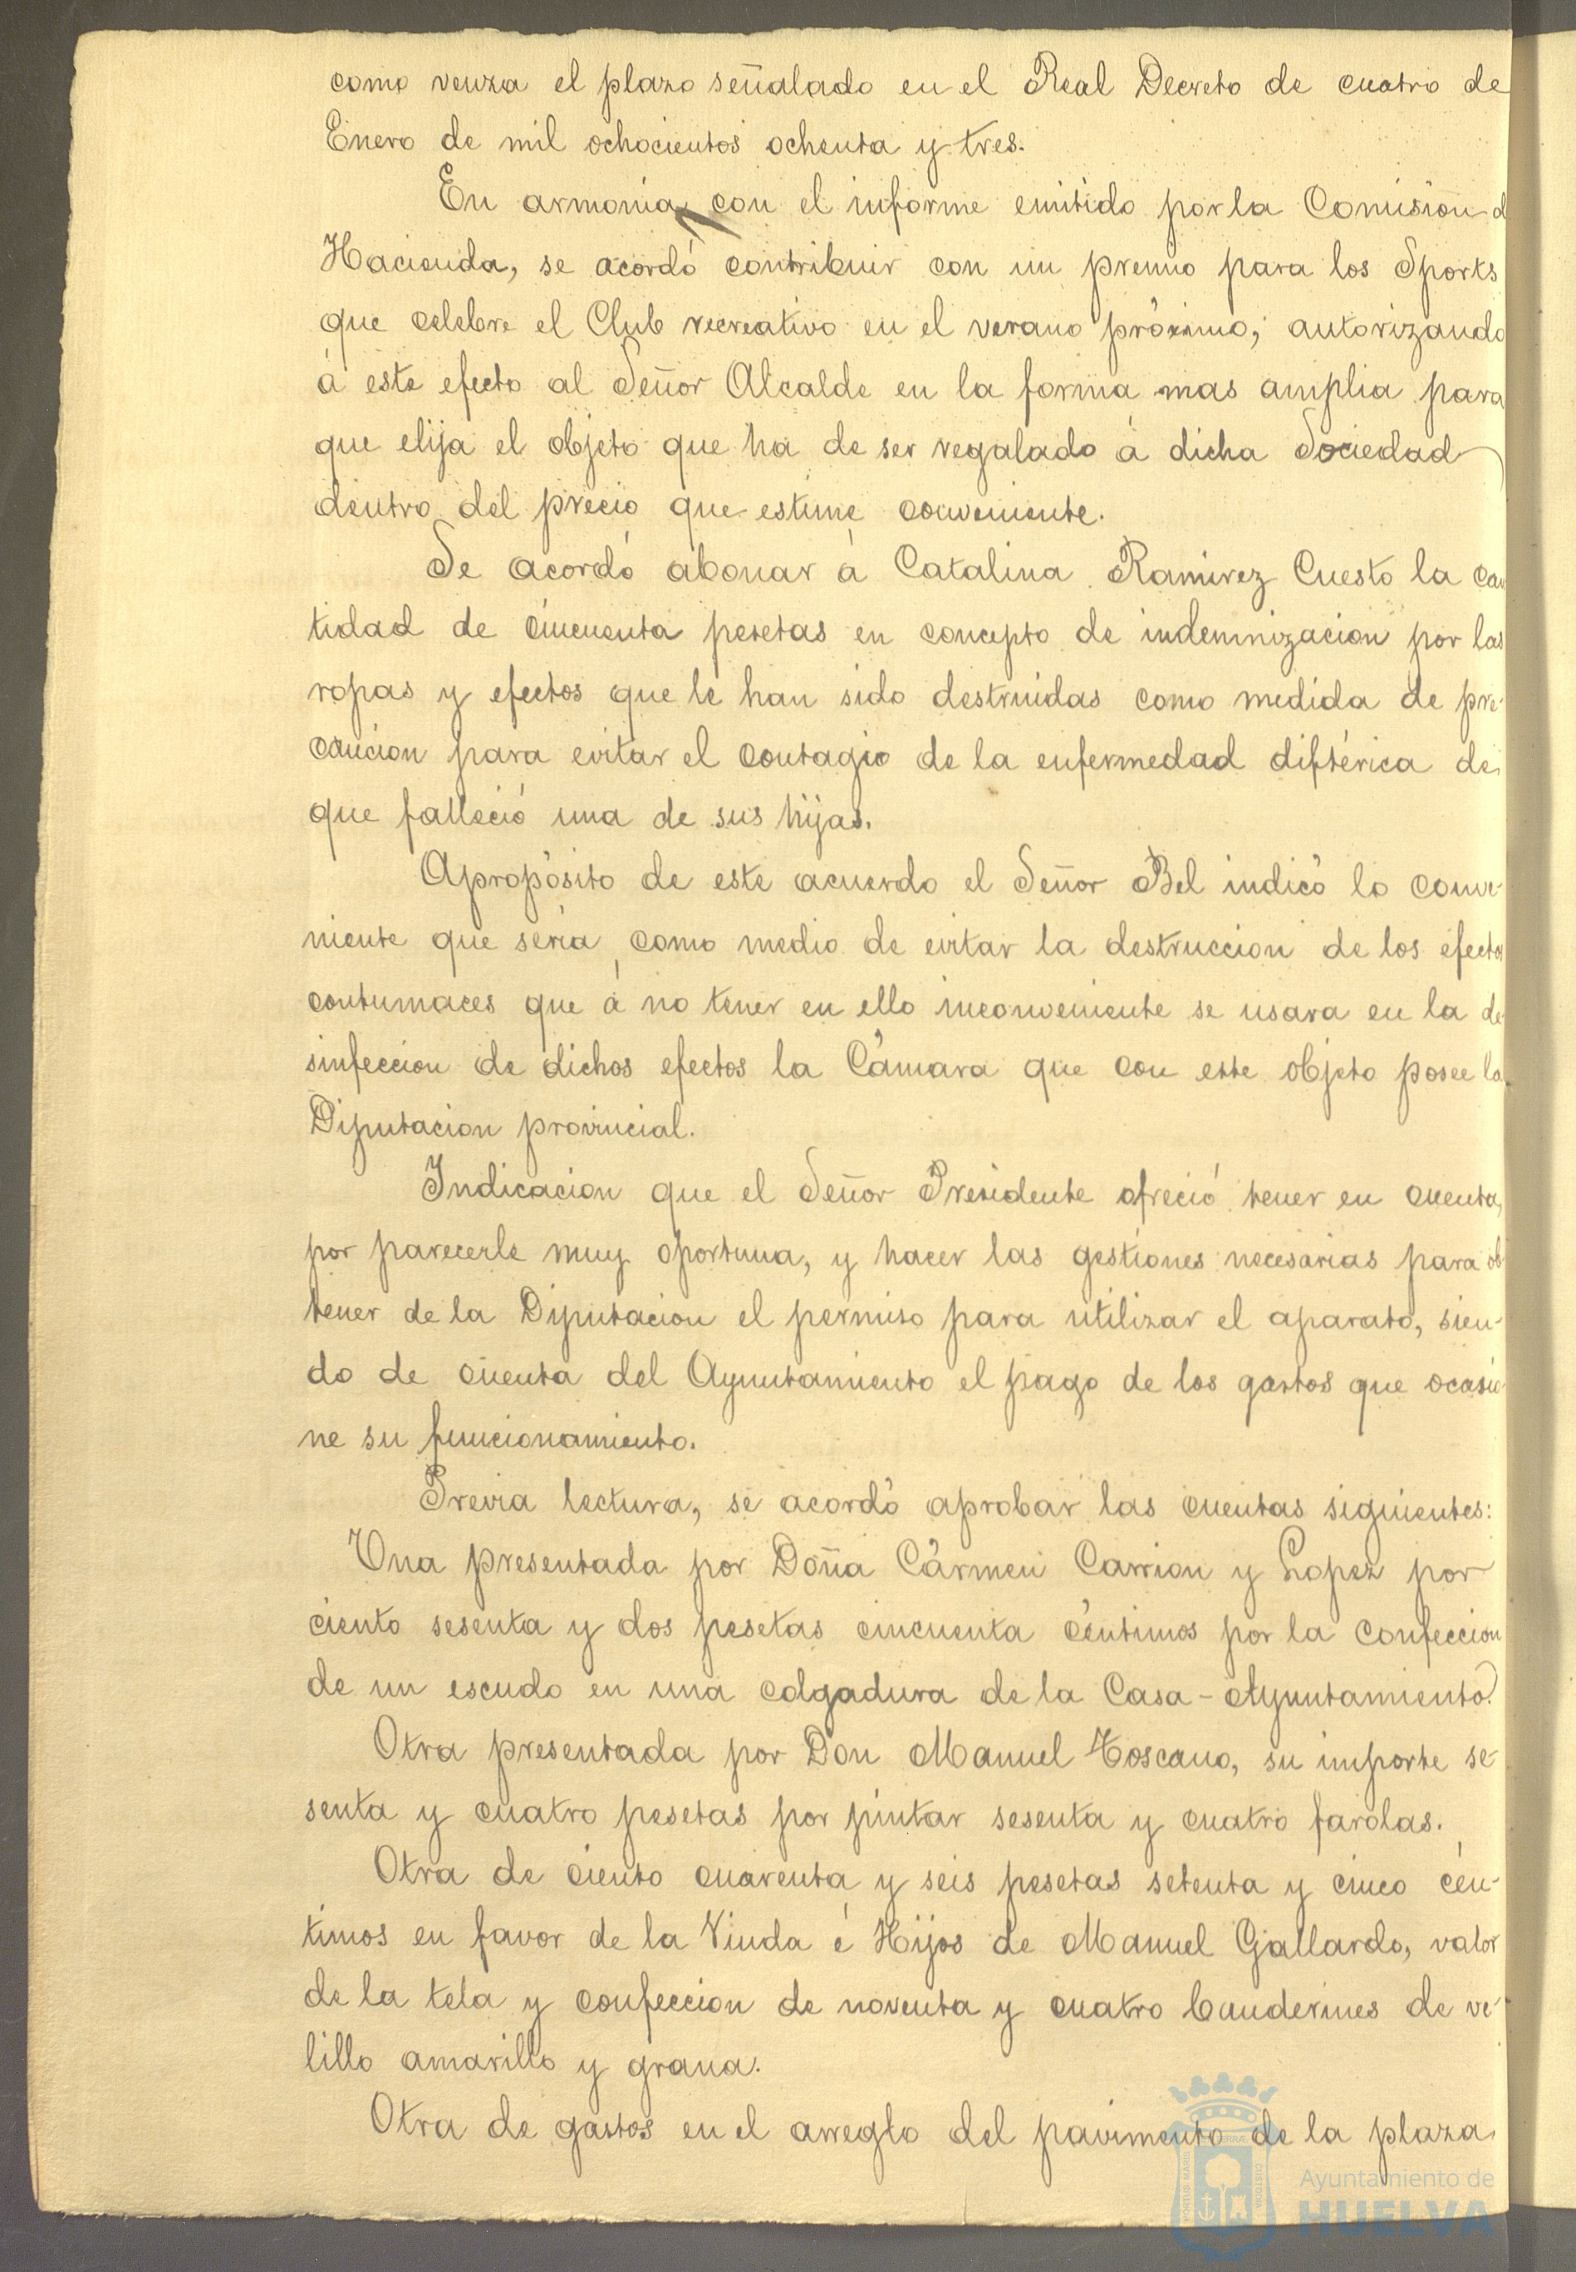 como venza el plazo señalado en el Real Decreto de cuatro de
Enero de mil ochocientos ochenta y tres.
En armonia con el informe emitido por la Comision d
Hacienda, se acordó contribuir con un premio para los Sports
que celebre el Club recreativo en el verano próximo; autorizando
á este efecto al Señor Alcalde en la forma mas amplia para
que elija el objeto que ha de ser regalado á dicha Sociedad
dentro del precio que estime conveniente.
Se acordó abonar á Catalina Ramirez Cuesto la can
tidad de cincuenta pesetas en concepto de indemnizacion por las
ropas y efectos que le han sido destruidas como medida de pre-
caucion para evitar el contagio de la enfermedad diftérica de
que falleció una de sus hijas.
Apropósito de este acuerdo el Señor Bel indicó lo conve-
niente que sería, como medio de evitar la destruccion de los efectos
contumaces que á no tener en ello inconveniente se usara en la de
sinfeccion de dichos efectos la Cámara que con este objeto posee la
Diputacion provincial.
Indicacion que el Señor Presidente ofreció tener en cuenta,
por parecerle muy oportuna, y hacer las gestiones necesarias para ob
tener de la Diputacion el permiso para utilizar el aparato, sien-
do de cuenta del Ayuntamiento el pago de los gastos que ocasio-
ne su funcionamiento.
Previa lectura, se acordó aprobar las cuentas siguientes:
Una presentada por Doña Cármen Carrion y Lopez por
ciento sesenta y dos pesetas cincuenta céntimos por la confeccion
de un escudo en una colgadura de la Casa-Ayuntamiento.
Otra presentada por Don Manuel Toscano, su importe se-
senta y cuatro pesetas por pintar sesenta y cuatro farolas.
Otra de ciento cuarenta y seis pesetas setenta y cinco cén-
timos en favor de la Viuda é Hijos de Manuel Gallardo, valor
de la tela y confeccion de noventa y cuatro banderines de ve-
lillo amarillo y grana.
Otra de gastos en el arreglo del pavimento de la plaza
Ayuntamiento de
HUELVA